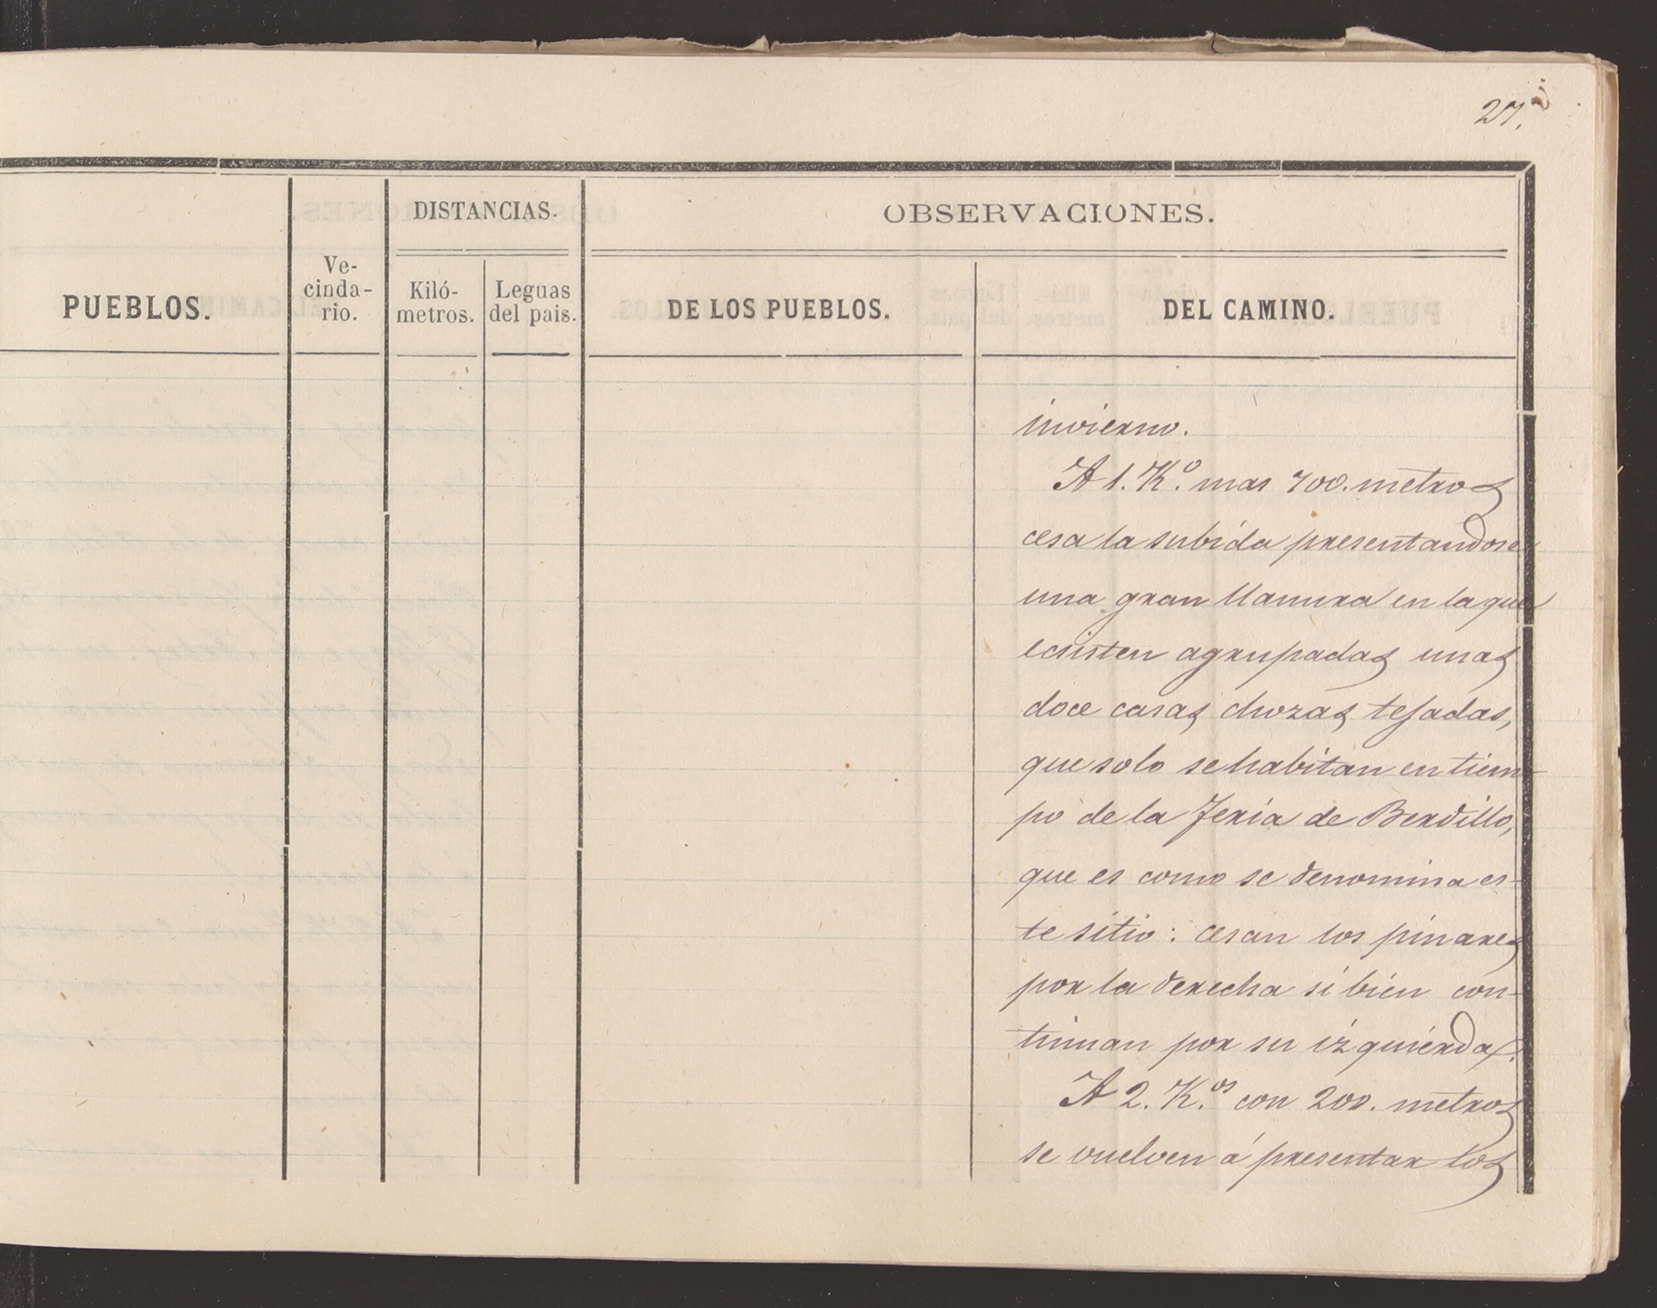 27.
DISTANCIAS.
OBSERVACIONES.
PUEBLOS.
Ve-
cinda-
rio.
Kiló-
metros.
Leguas
del pais.
DE LOS PUEBLOS.
DEL CAMINO.
invierno.
A 1. K.º mas 700. metros
cesa la subida presentandose
una gran llanura en la que
ecsisten agrupadas unas
doce casas chozas tejadas,
que solo se habitan en tiem-
po de la Feria de Berdillo,
que es como se denomina es-
te sitio: cesan los pinares
por la derecha si bien con-
tinuan por su izquierda.
A 2. K.os con 200. metros
se vuelven á presentar los